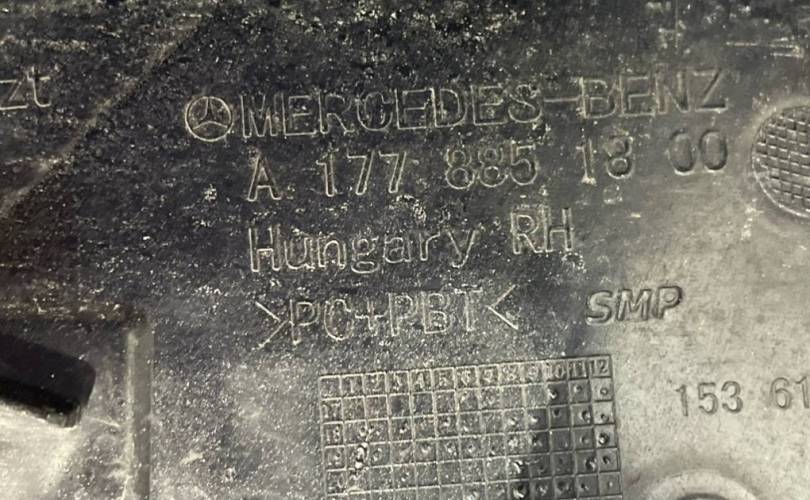 zt
MERCEDES-BENZ
A 177 885 13 00
Hungary RH
>PC+PBT<
SMP
1 2 3 4 5 6 7 8 9 10 11 12
17
18
153 61